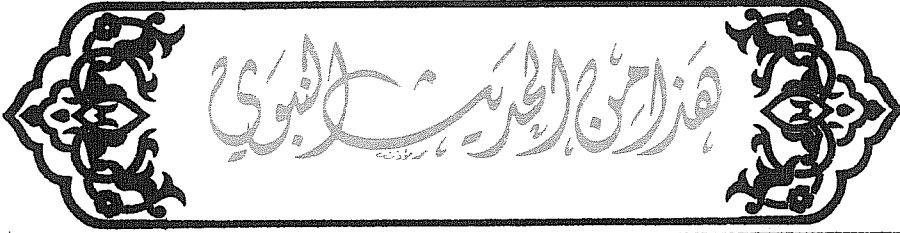 هَذا مِنَ الحَديثِ النبَوَي